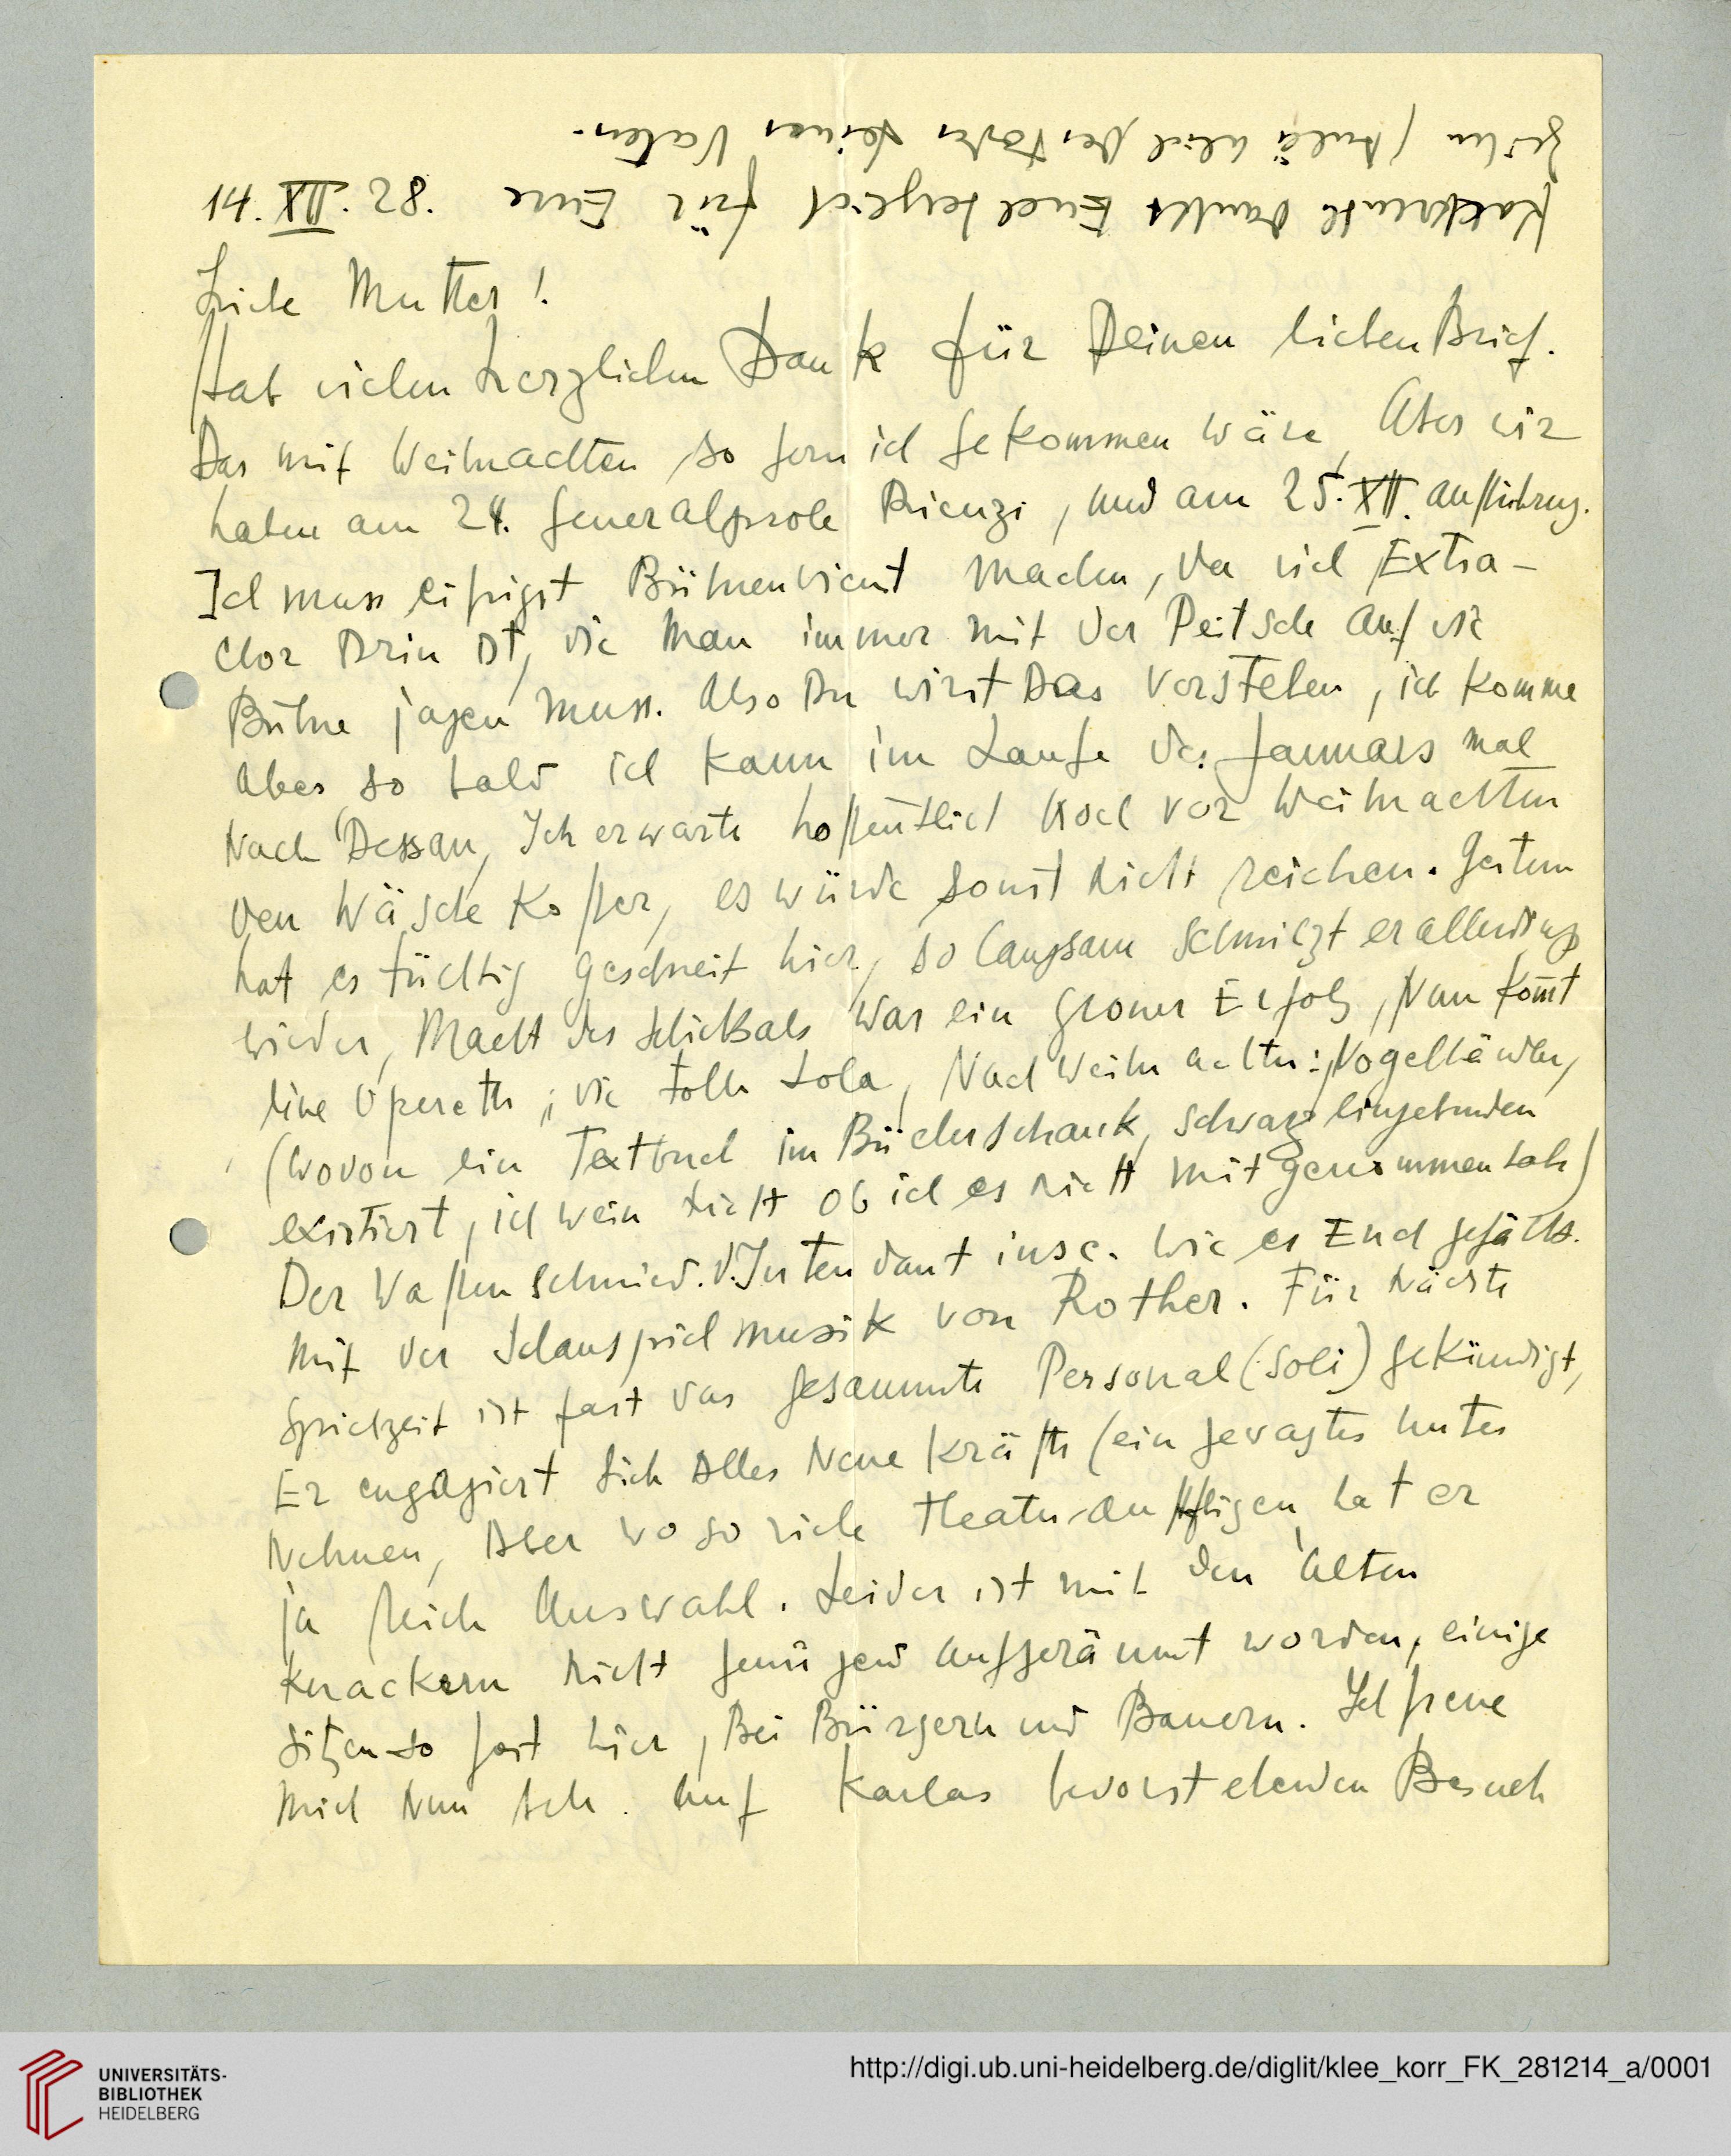 Kaltbrenth dankt Euch herzlich für Eure
Zeilen / anlässlich des Todes seines Vaters.
14. XII. 28.
Liebe Mutter!
Hab vielen herzlichen Dank für Deinen lieben Brief.
Das mit Weihnachten so gern ich gekommen wäre, Aber wir
haben am 24. Generalprobe Rienzi, und am 25. XII. Aufführung.
Ich muss eifrigst Bühnendienst machen, da viel Extra-
chor drin ist, die man immer mit der Peitsche auf die
Bühne jagen muss. Also Du wirst das verstehen, ich komme
aber so bald ich kann im Laufe des Januars mal
nach Dessau, Ich erwarte hoffentlich noch vor Weihnachten
den Wäsche Koffer, es würde sonst nicht reichen. Gestern
hat es tüchtig geschneit hier, so langsam schmilzt er allerdings
wieder, Macht des Schicksals war ein grosser Erfolg, Nun kommt
eine Operette; die tolle Lola, Nach Weihnachten: Vogelhändler,
(wovon ein Textbuch im Bücherschrank, schwarz eingebunden
existiert, ich weiss nicht ob ich es nicht mitgenommen habe)
Der Waffenschmied. D. Intendant insc. wie es Euch gefällt.
mit der Schauspielmusik von Rother. Für nächste
Spielzeit ist fast das gesammte Personal (Soli) gekündigt,
Er engagiert sich alles neue Kräfte (ein gewagtes Unter
nehmen, aber wo so viele Theater auffliegen, hat er
ja reiche Auswahl. Leider ist mit den alten
Knackern nicht genügend aufgeräumt worden, einige
sitzen so fest hier, Bei Bürgern und Bauern. Ich freue
mich nun sehr auf Karlas bevorstehenden Besuch
UNIVERSITÄTS-
BIBLIOTHEK
HEIDELBERG
http://digi.ub.uni-heidelberg.de/diglit/klee_korr_FK_281214_a/0001